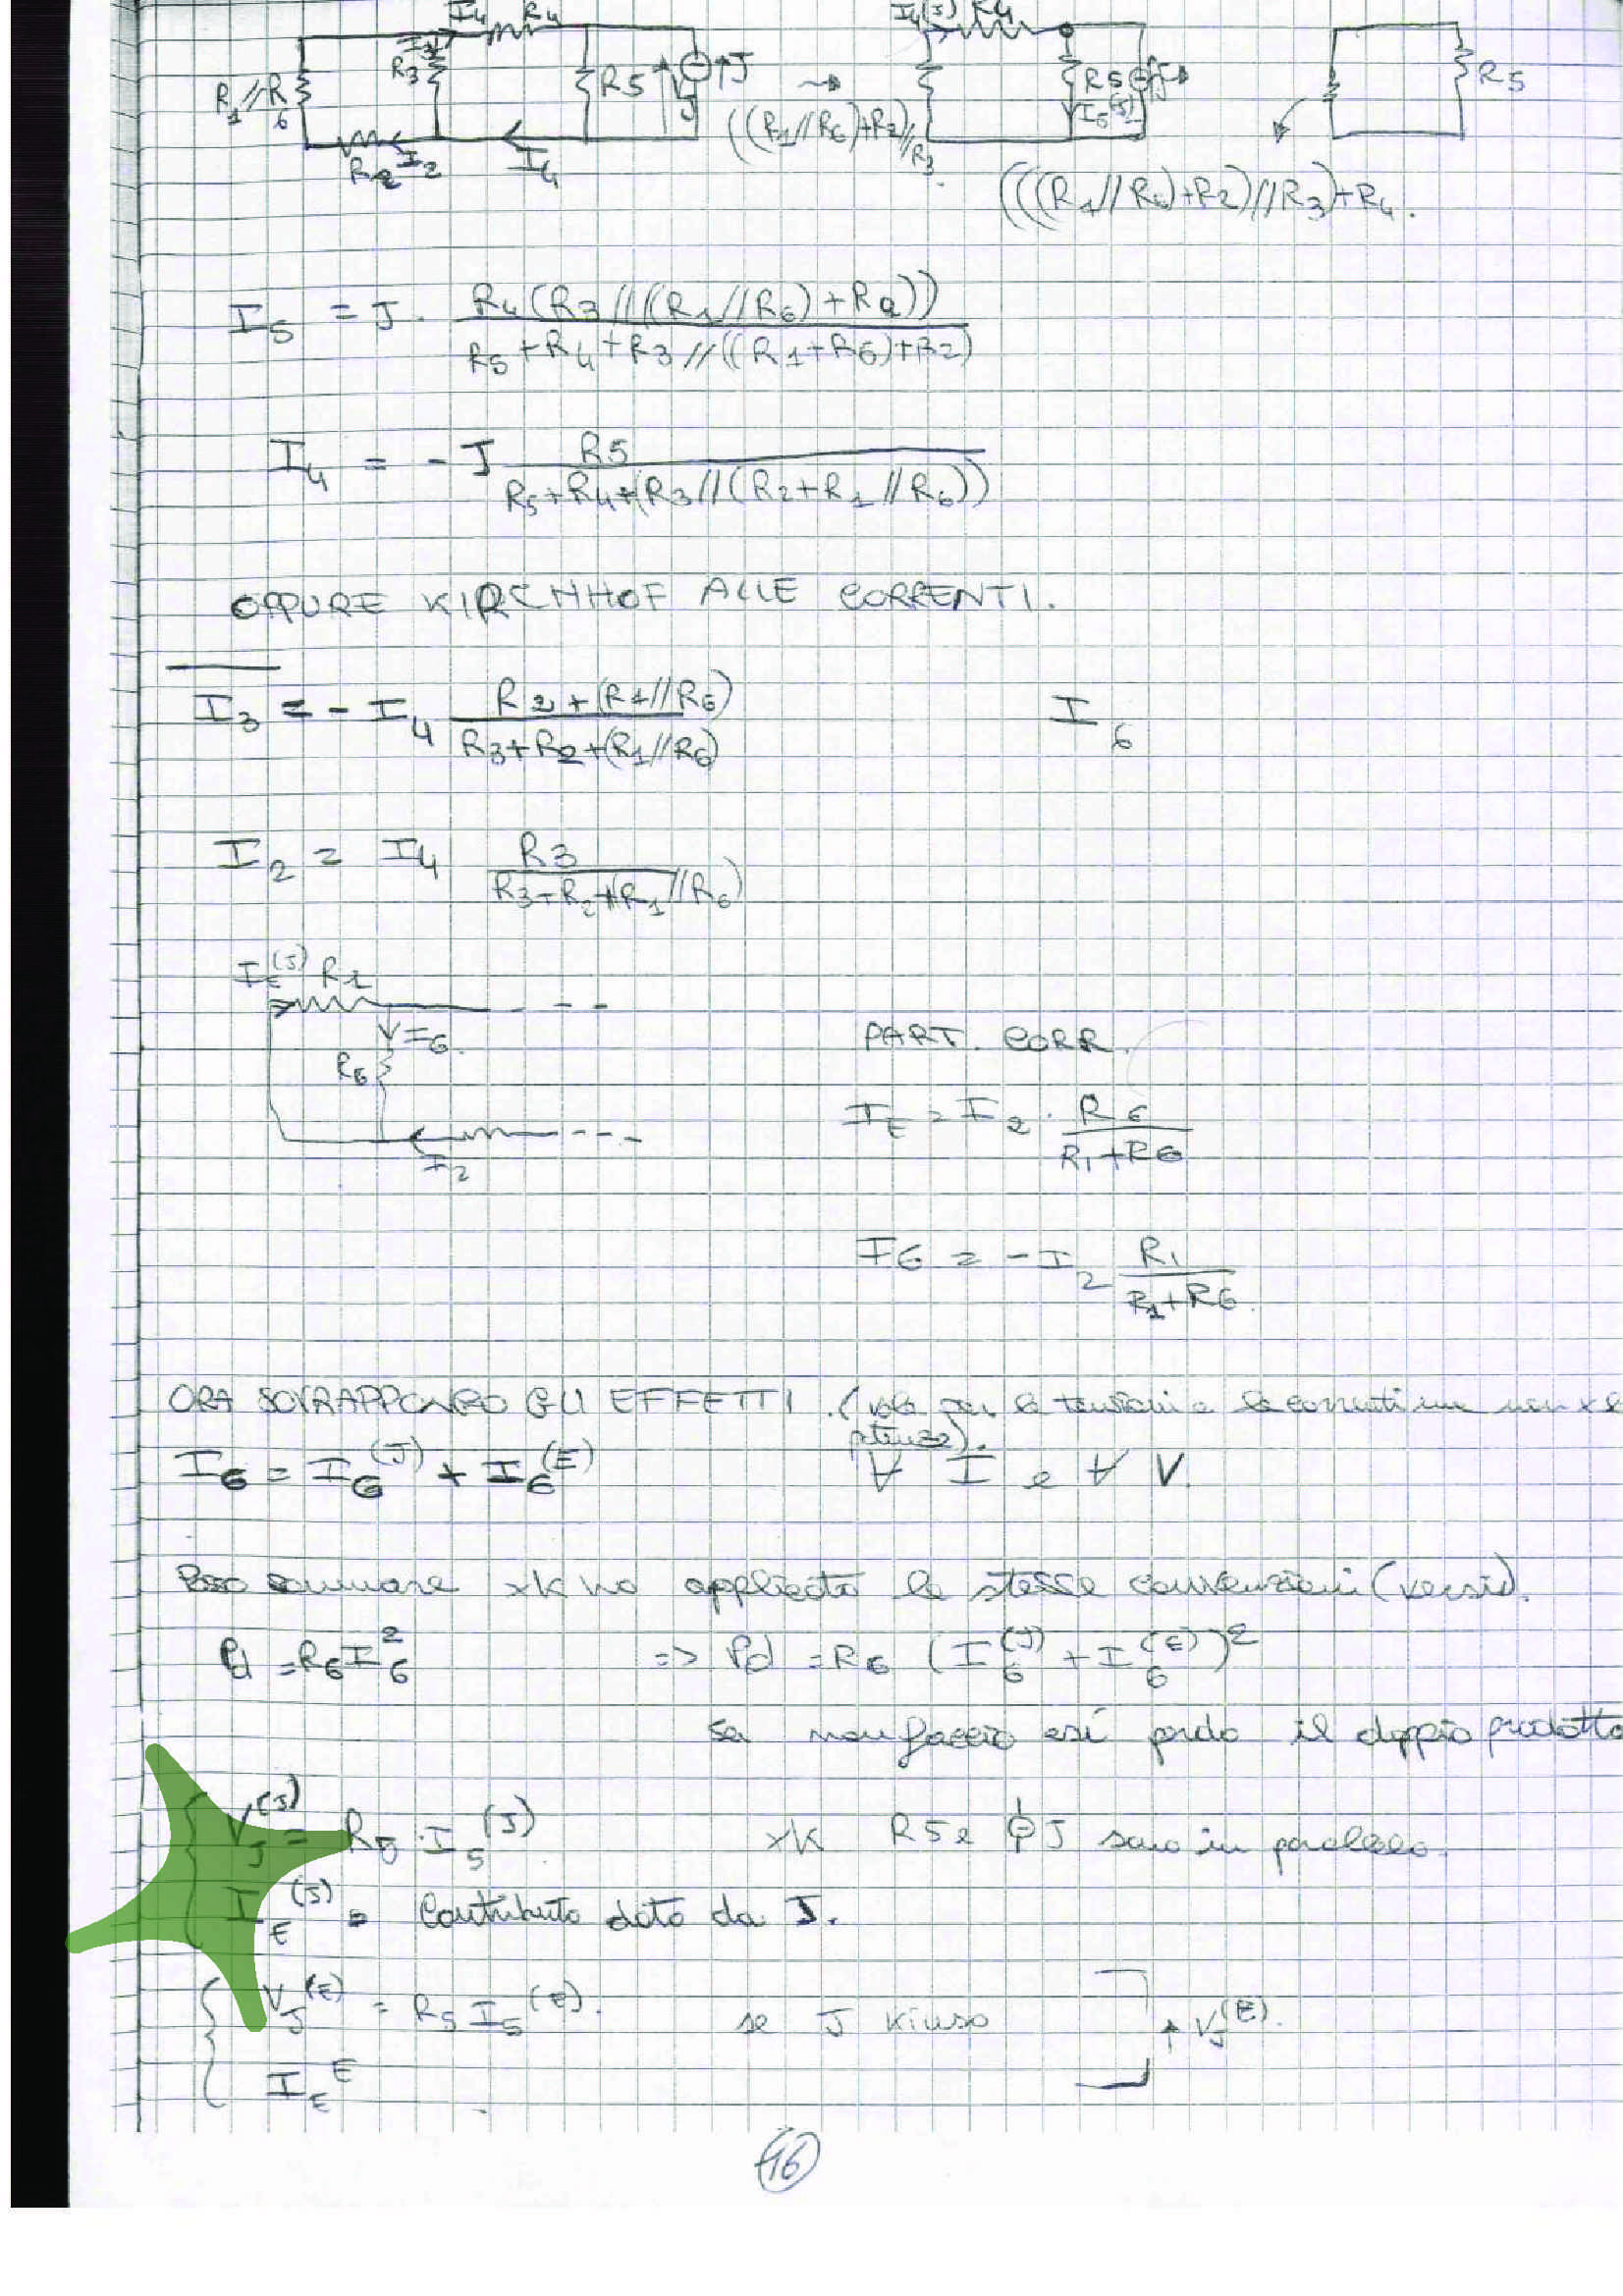 I4 R4 I4(J) R4
R1//R6 R3 R5 J J R5 J R5
R2 I2 I4 ((R1//R6)+R2)//R3 I5(J)
(((R1//R6)+R2)//R3)+R4.
I5 = J · R4(R3//((R1//R6)+R2)) / R5+R4+R3//((R1+R6)+R2)
I4 = -J R5 / R5+R4+(R3//(R2+R1//R6))
OPPURE KIRCHHOF ALLE CORRENTI.
I3 = -I4 R2+(R1//R6) / R3+R2+(R1//R6) I6
I2 = I4 R3 / R3+R2+(R1//R6)
IE(J) R1
I6.
R6
I2
PART. CORR.
IE = I2 · R6 / R1+R6
I6 = -I2 R1 / R1+R6.
ORA SOVRAPPONGO GLI EFFETTI. (vale per le tensioni e le correnti ma non x le
potenze).
I6 = I6(J) + I6(E) ∀ I e ∀ V.
Posso sommare xk ho applicato le stesse convenzioni (versi).
Pd = R6 I6² => Pd = R6 (I6(J) + I6(E))²
se non faccio così perdo il doppio prodotto
VJ(J) = R5 · I5(J) xk R5 e J sono in parallelo.
IE(J) = Contributo dato da J.
VJ(E) = R5 I5(E). se J kiuso VJ(E).
IE E
16